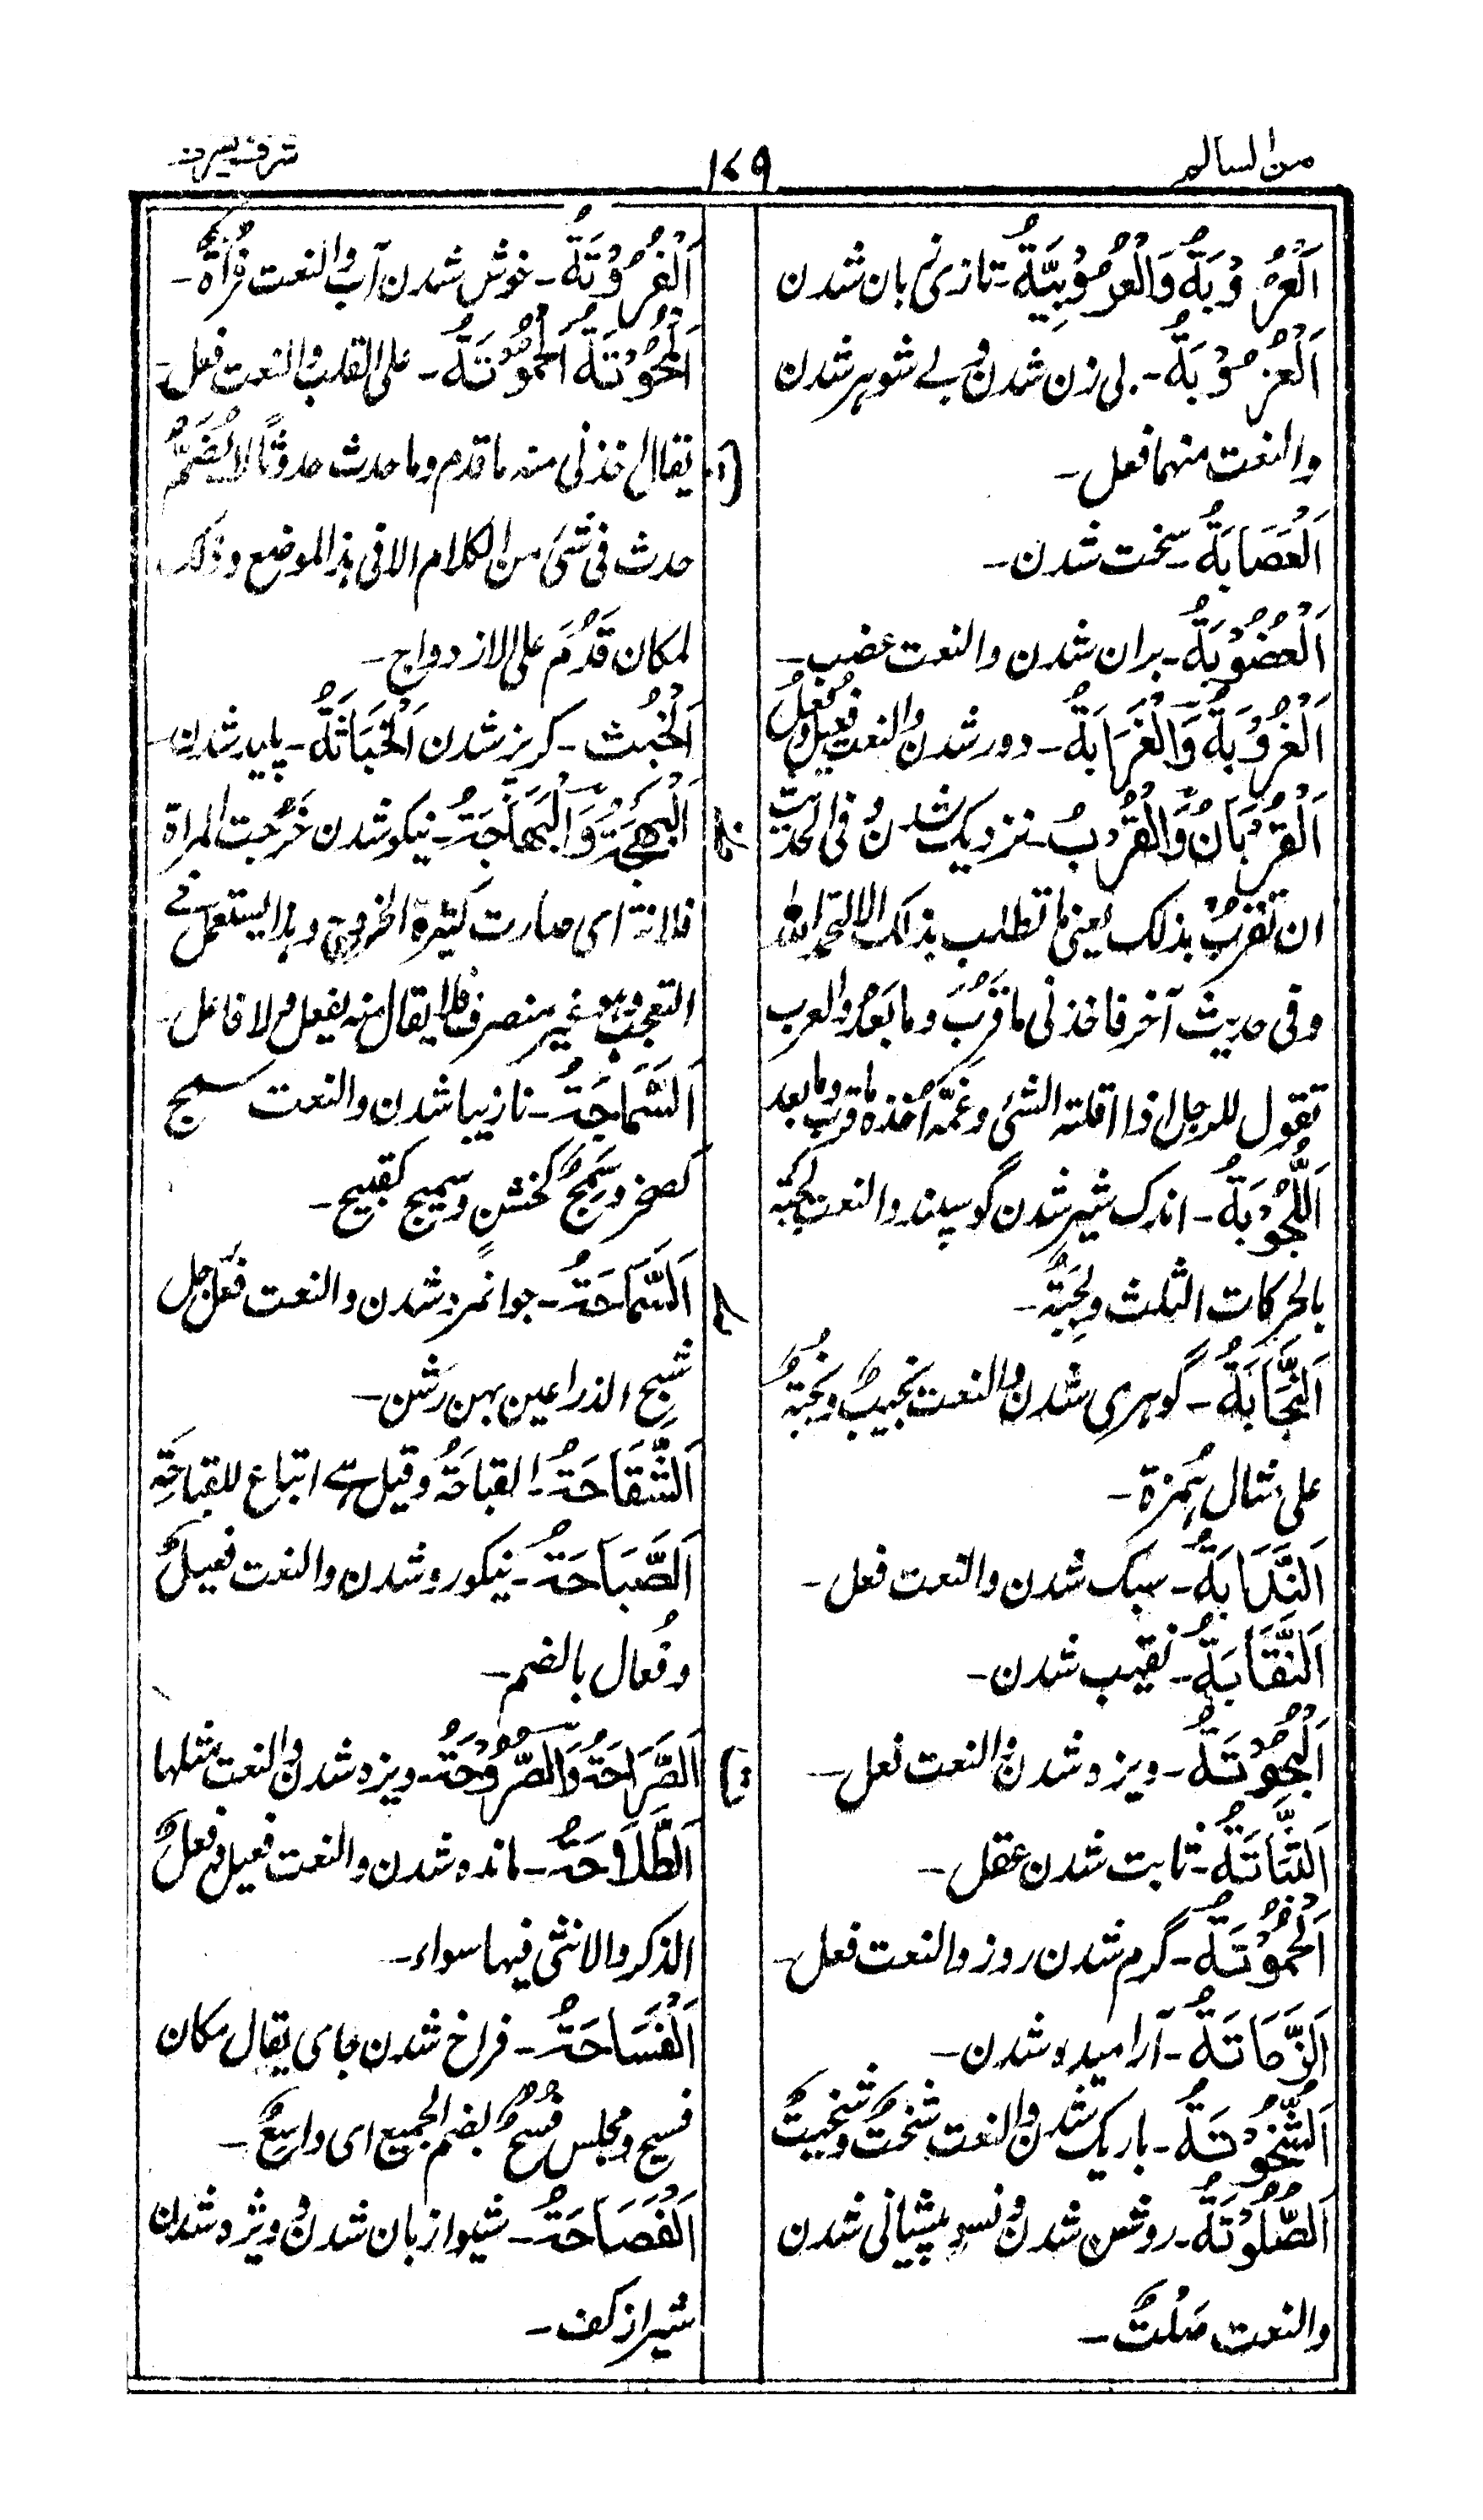 من السالم
١٧٩
اَلْعُرُوْبَةُ وَالْعُرُوْبِيَّةُ - تازی زبان شدن
اَلْعُزُوْبَةُ - بی زن شدن و بے شوہر شدن
والنعت منهما فعل -
اَلْعَصَابَةُ - سخت شدن -
اَلْعُضُوْبَةُ - بران شدن والنعت عضب -
اَلْغُرُوْبَةُ وَالْغَرَابَةُ - دور شدن والنعت فعیل و فُعُلٌ
اَلْقُرْبَانُ وَالْقُرْبُ - نزدیک شدن و فی الحدیث
ان نَقْرُبُ بذلک یعنی ما تطلب بذلک الا التحمد اللہ
وفی حدیث آخر فاخذنی ما قَرُبَ وما بَعُدَ والعرب
تقول للرجل اذا اقلقته الشئ وغمّه اخذه ما قرب وما بعد
اَللُّجُوْبَةُ - اندک شیر شدن گوسپند والنعت لجبة
بالحرکات الثلث ولَجِبَةٌ -
اَلنَّجَابَةُ - گوہری شدن والنعت نجیبٌ ونُجَبَةٌ
علی مثال ہُمَزة -
اَلنَّدَابَةُ - سبک شدن والنعت فعل -
اَلنَّقَابَةُ - نقیب شدن -
اَلْبُحُوْتَةُ - ویزہ شدن والنعت فعل -
اَلثَّبَاتَةُ - ثابت شدن عقل -
اَلْحُمُوْتَةُ - گرم شدن روز والنعت فعل -
اَلزَّمَاتَةُ - آرامیدہ شدن -
اَلشُّخُوْتَةُ - باریک شدن والنعت شَخْتٌ وشَخِیْتٌ
اَلصُّلُوْتَةُ - روشن شدن و نسو پیشانی شدن
والنعت صَلْتٌ -
اَلْفُرُوْتَةُ - خوش شدن آب والنعت فُرَاتٌ -
اَلْمُحُوْتَةُ اَلْحُمُوْتَةُ - علی القلب والنعت فعل -
یقال خذنی منه ما قدم وما حدث حدوثاً لا یُضَمُّ
حدث فی شئ من الکلام الا فی ہذا الموضع وذلک
لمکان قَدُمَ علی الازدواج -
اَلْخُبْث - کربز شدن اَلْخَبَاثَةُ - پلید شدن -
اَلْبَهْجَةُ وَالْبَهَاجَةُ - نیکو شدن خَرُجت المرأة
فلانة ای صارت کثیرة الخروج وہذا یستعمل فے
التعجب وہو غیر منصرف فلا یقال منه یفعل ولا فاعل -
اَلسَّمَاجَةُ - نازیبا شدن والنعت سمج
کصخر وسَمِجٌ کخشن وسمیج کقبیح -
اَلسَّمَاحَةُ - جوانمرد شدن والنعت فَعْل رجل
شبح الذراعین پہن رشن -
اَلشَّقَاحَةُ - القباحَةُ وقیل ہے اتباع للقباحَةِ
اَلصَّبَاحَةُ - نیکو رو شدن والنعت فعیلٌ
وفُعال بالضم -
اَلصَّرَاحَةُ وَالصُّرُوْحَةُ - ویزہ شدن والنعت مثلها
اَلطَّلَاحَةُ - ماندہ شدن والنعت فعیل و فعلٌ
الذکر والانثی فیها سواء -
اَلْفُسَاحَةُ - فراخ شدن جای یقال مکان
فسیح ومجلس فُسُحٌ بضم الجمیع ای واسِعٌ -
اَلْفَصَاحَةُ - شیوا زبان شدن و ویژہ شدن
شیر از کف -